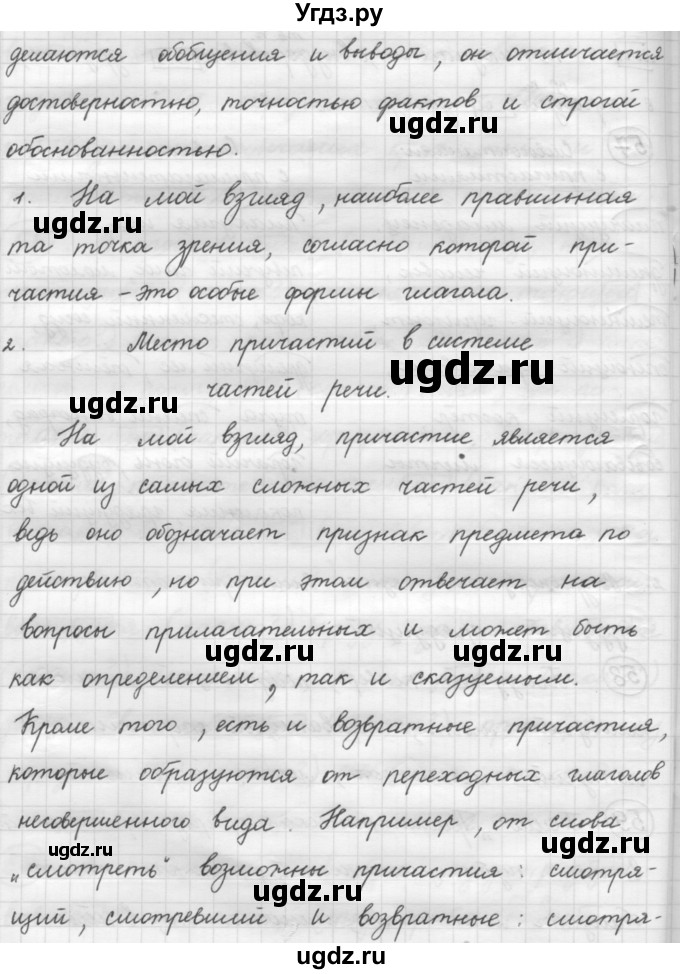 Угдз.ру
делаются обобщения и выводы, он отличается
достоверностью, точностью фактов и строгой
обоснованностью.
1. На мой взгляд, наиболее правильная
та точка зрения, согласно которой при-
частия - это особые формы глагола.
2. Место причастий в системе
частей речи.
На мой взгляд, причастие является
одной из самых сложных частей речи,
ведь оно обозначает признак предмета по
действию, но при этом отвечает на
вопросы прилагательных и может быть
как определением, так и сказуемым.
Кроме того, есть и возвратные причастия,
которые образуются от переходных глаголов
несовершенного вида. Например, от слова
„смотреть" возможны причастия: смотря-
щий, смотревший и возвратные: смотря-
ugdz.ru
ugdz.ru
ugdz.ru
ugdz.ru
ugdz.ru
ugdz.ru
ugdz.ru
ugdz.ru
ugdz.ru
ugdz.ru